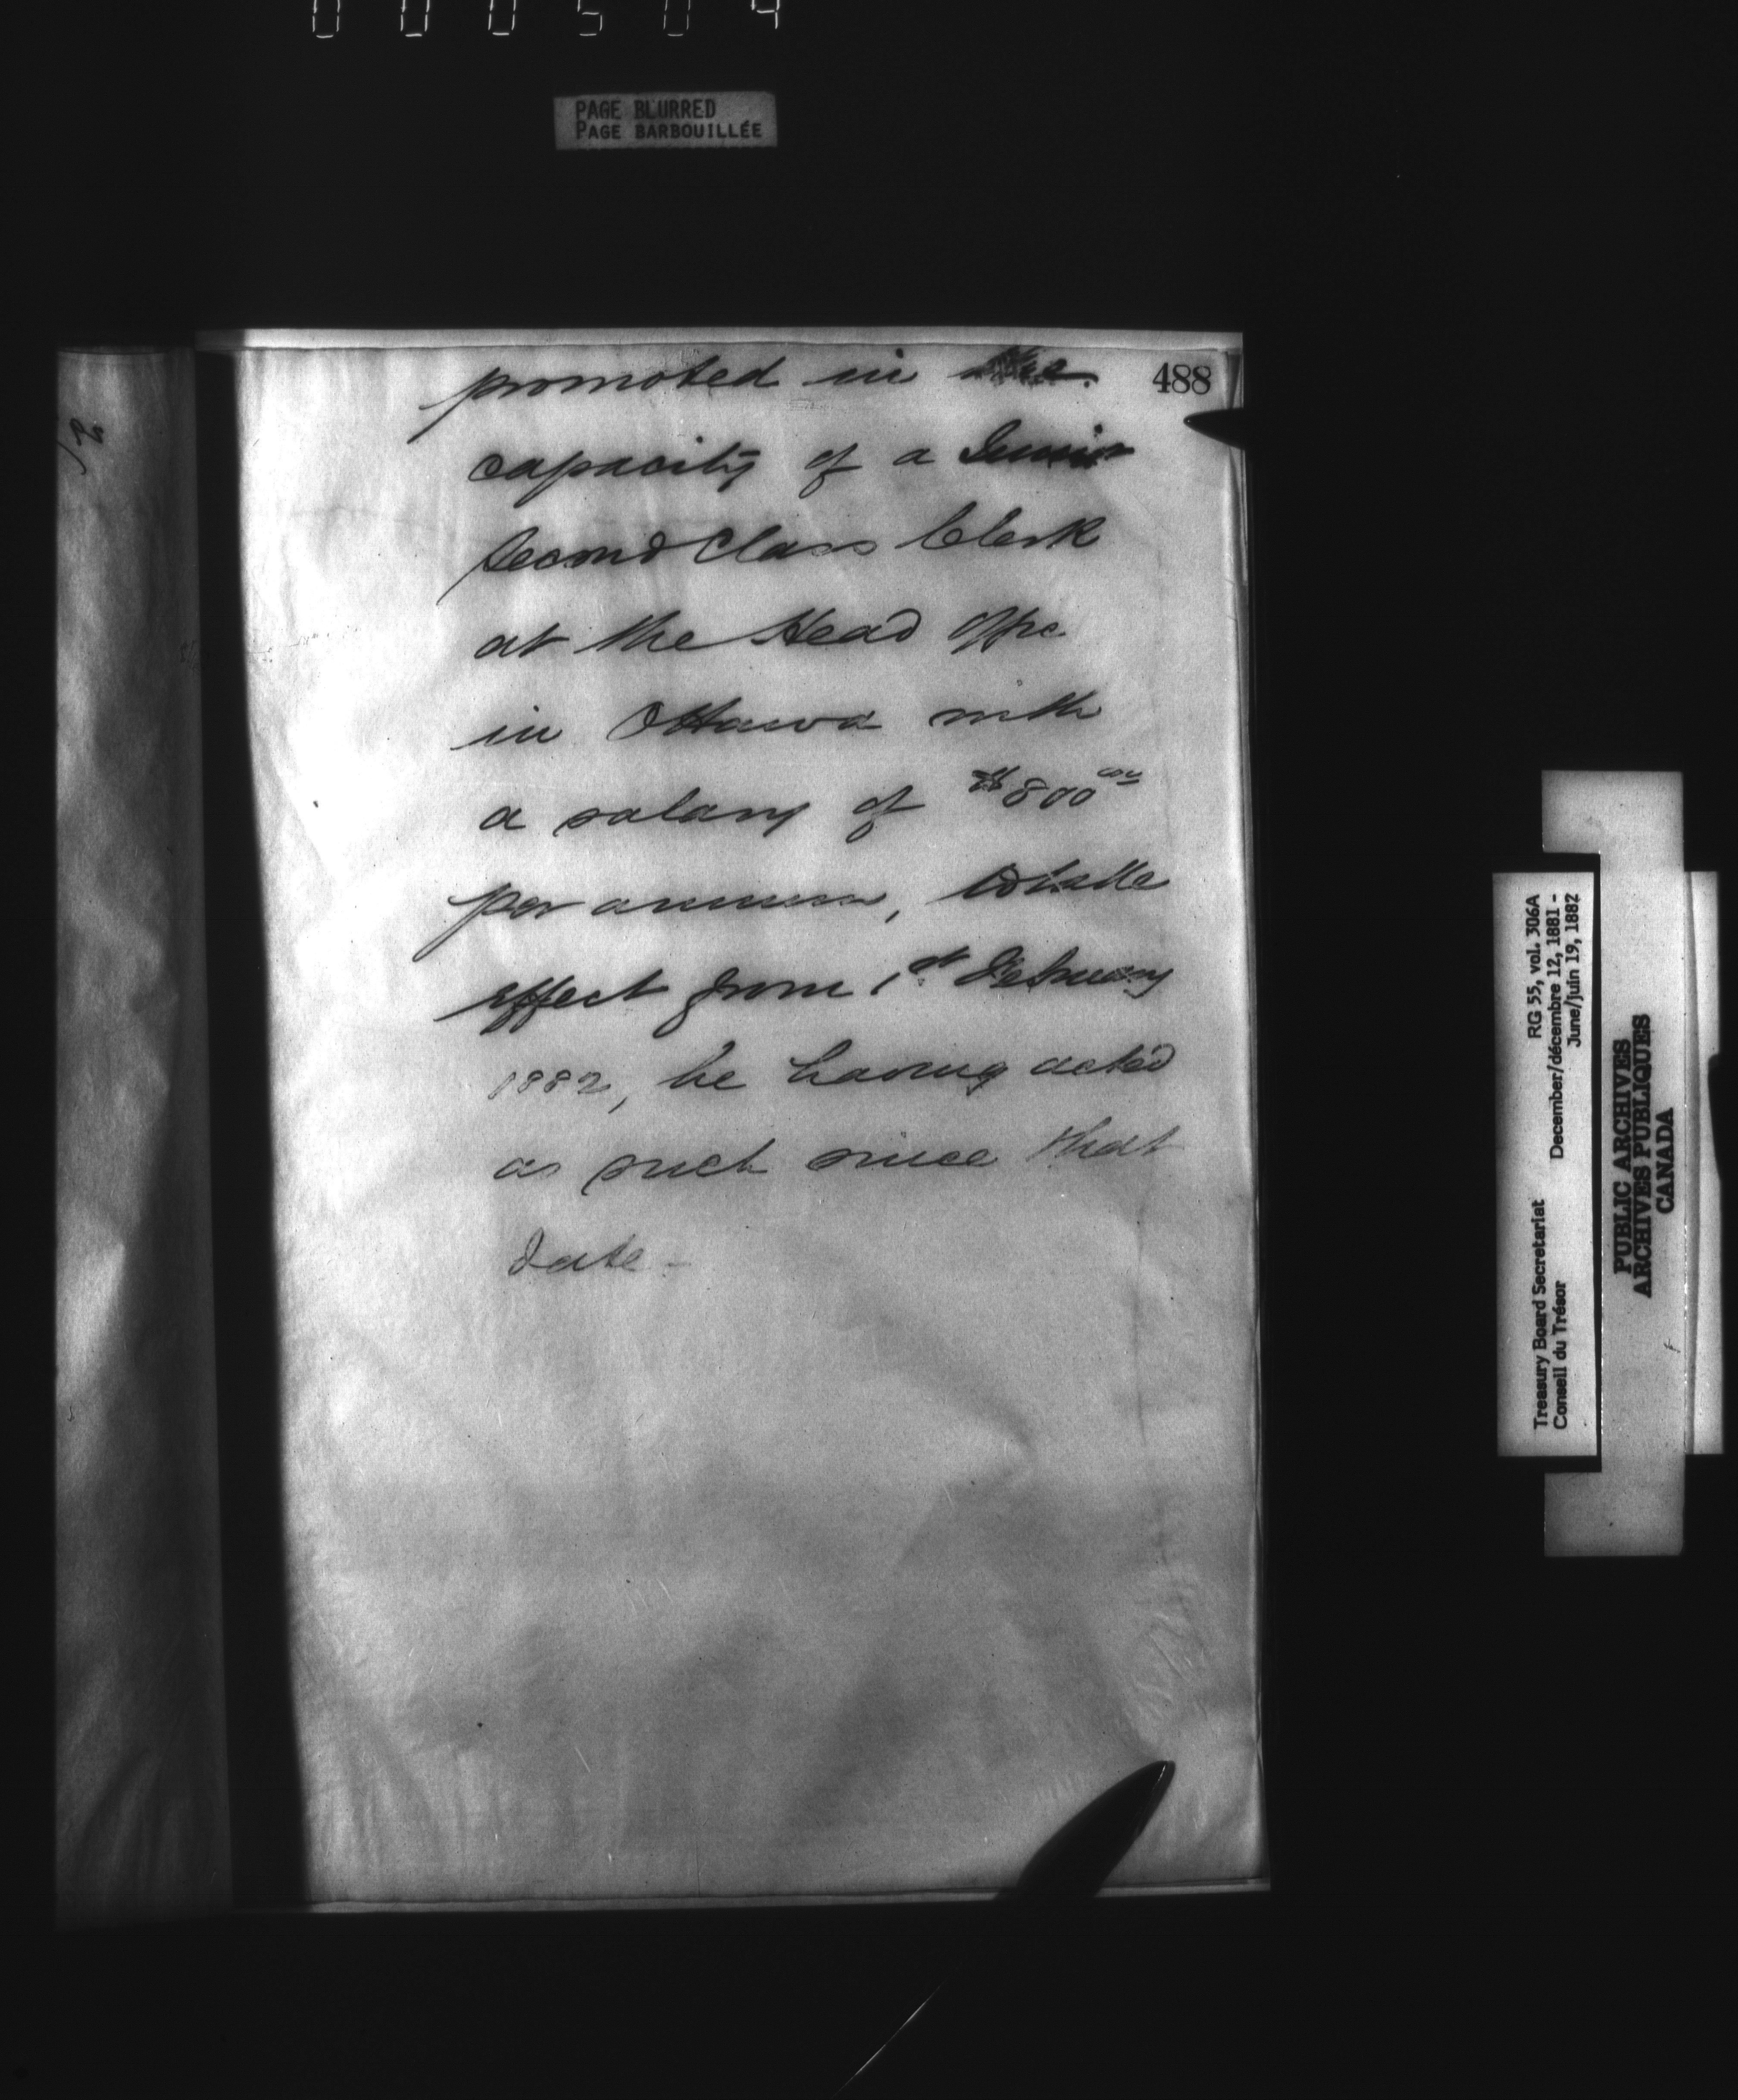 000504
PAGE BLURRED
PAGE BARBOUILLÉE
488
promoted in the
capacity of a Junior
Second Class Clerk
at the Head Offic.
in Ottawa with
a salary of $800
per annum, to take
effect from 1st February
1882, he having acted
as such since that
date -
2/
Treasury Board Secretariat RG 55, vol. 306A
Conseil du Trésor December/décembre 12, 1881 -
June/juin 19, 1882
PUBLIC ARCHIVES
ARCHIVES PUBLIQUES
CANADA